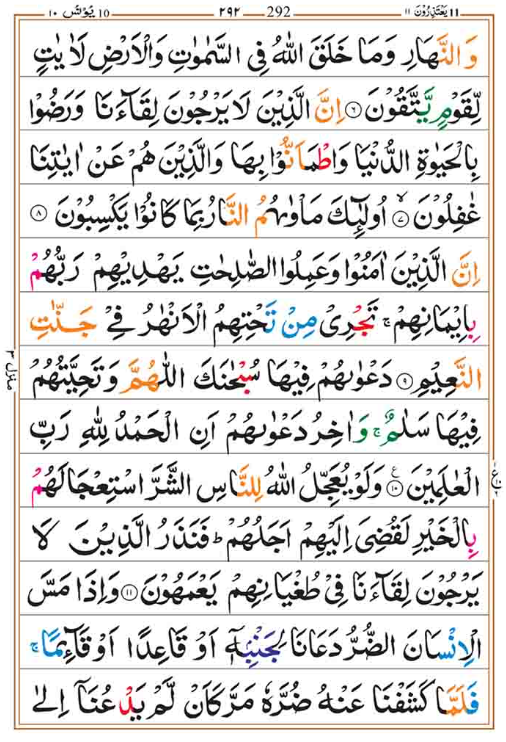 یَعْتَذِرُوْنَ ۱۱ 11 ۲۹۲ 292 یُوْنُس ۱۰ 10
وَ النَّهَارِ وَمَا خَلَقَ اللّٰهُ فِی السَّمٰوٰتِ وَالْاَرْضِ لَاٰیٰتٍ
لِّقَوْمٍ یَّتَّقُوْنَ ۝۶ اِنَّ الَّذِیْنَ لَا یَرْجُوْنَ لِقَآءَنَا وَرَضُوْا
بِالْحَیٰوةِ الدُّنْیَا وَاطْمَاَنُّوْا بِهَا وَالَّذِیْنَ هُمْ عَنْ اٰیٰتِنَا
غٰفِلُوْنَ ۝۷ اُولٰٓىِٕكَ مَاْوٰىهُمُ النَّارُ بِمَا كَانُوْا یَكْسِبُوْنَ ۝۸
اِنَّ الَّذِیْنَ اٰمَنُوْا وَعَمِلُوا الصّٰلِحٰتِ یَهْدِیْهِمْ رَبُّهُمْ
بِاِیْمَانِهِمْ ۚ تَجْرِیْ مِنْ تَحْتِهِمُ الْاَنْهٰرُ فِیْ جَنّٰتِ
النَّعِیْمِ ۝۹ دَعْوٰىهُمْ فِیْهَا سُبْحٰنَكَ اللّٰهُمَّ وَتَحِیَّتُهُمْ
فِیْهَا سَلٰمٌ ۚ وَاٰخِرُ دَعْوٰىهُمْ اَنِ الْحَمْدُ لِلّٰهِ رَبِّ
الْعٰلَمِیْنَ ۝۱۰ وَلَوْ یُعَجِّلُ اللّٰهُ لِلنَّاسِ الشَّرَّ اسْتِعْجَالَهُمْ
بِالْخَیْرِ لَقُضِیَ اِلَیْهِمْ اَجَلُهُمْ ؕ فَنَذَرُ الَّذِیْنَ لَا
یَرْجُوْنَ لِقَآءَنَا فِیْ طُغْیَانِهِمْ یَعْمَهُوْنَ ۝۱۱ وَاِذَا مَسَّ
الْاِنْسَانَ الضُّرُّ دَعَانَا لِجَنْۢبِهٖۤ اَوْ قَاعِدًا اَوْ قَآىِٕمًا ۚ
فَلَمَّا كَشَفْنَا عَنْهُ ضُرَّهٗ مَرَّ كَاَنْ لَّمْ یَدْعُنَاۤ اِلٰی
منزل ۳